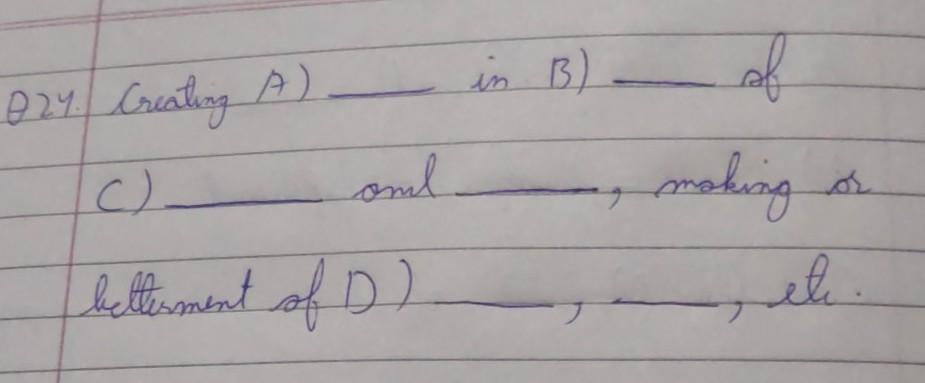 Q24. Creating A) ____ in B) ____ of
C) ____ and ____, making or
betterment of D) ____, ____, etc.